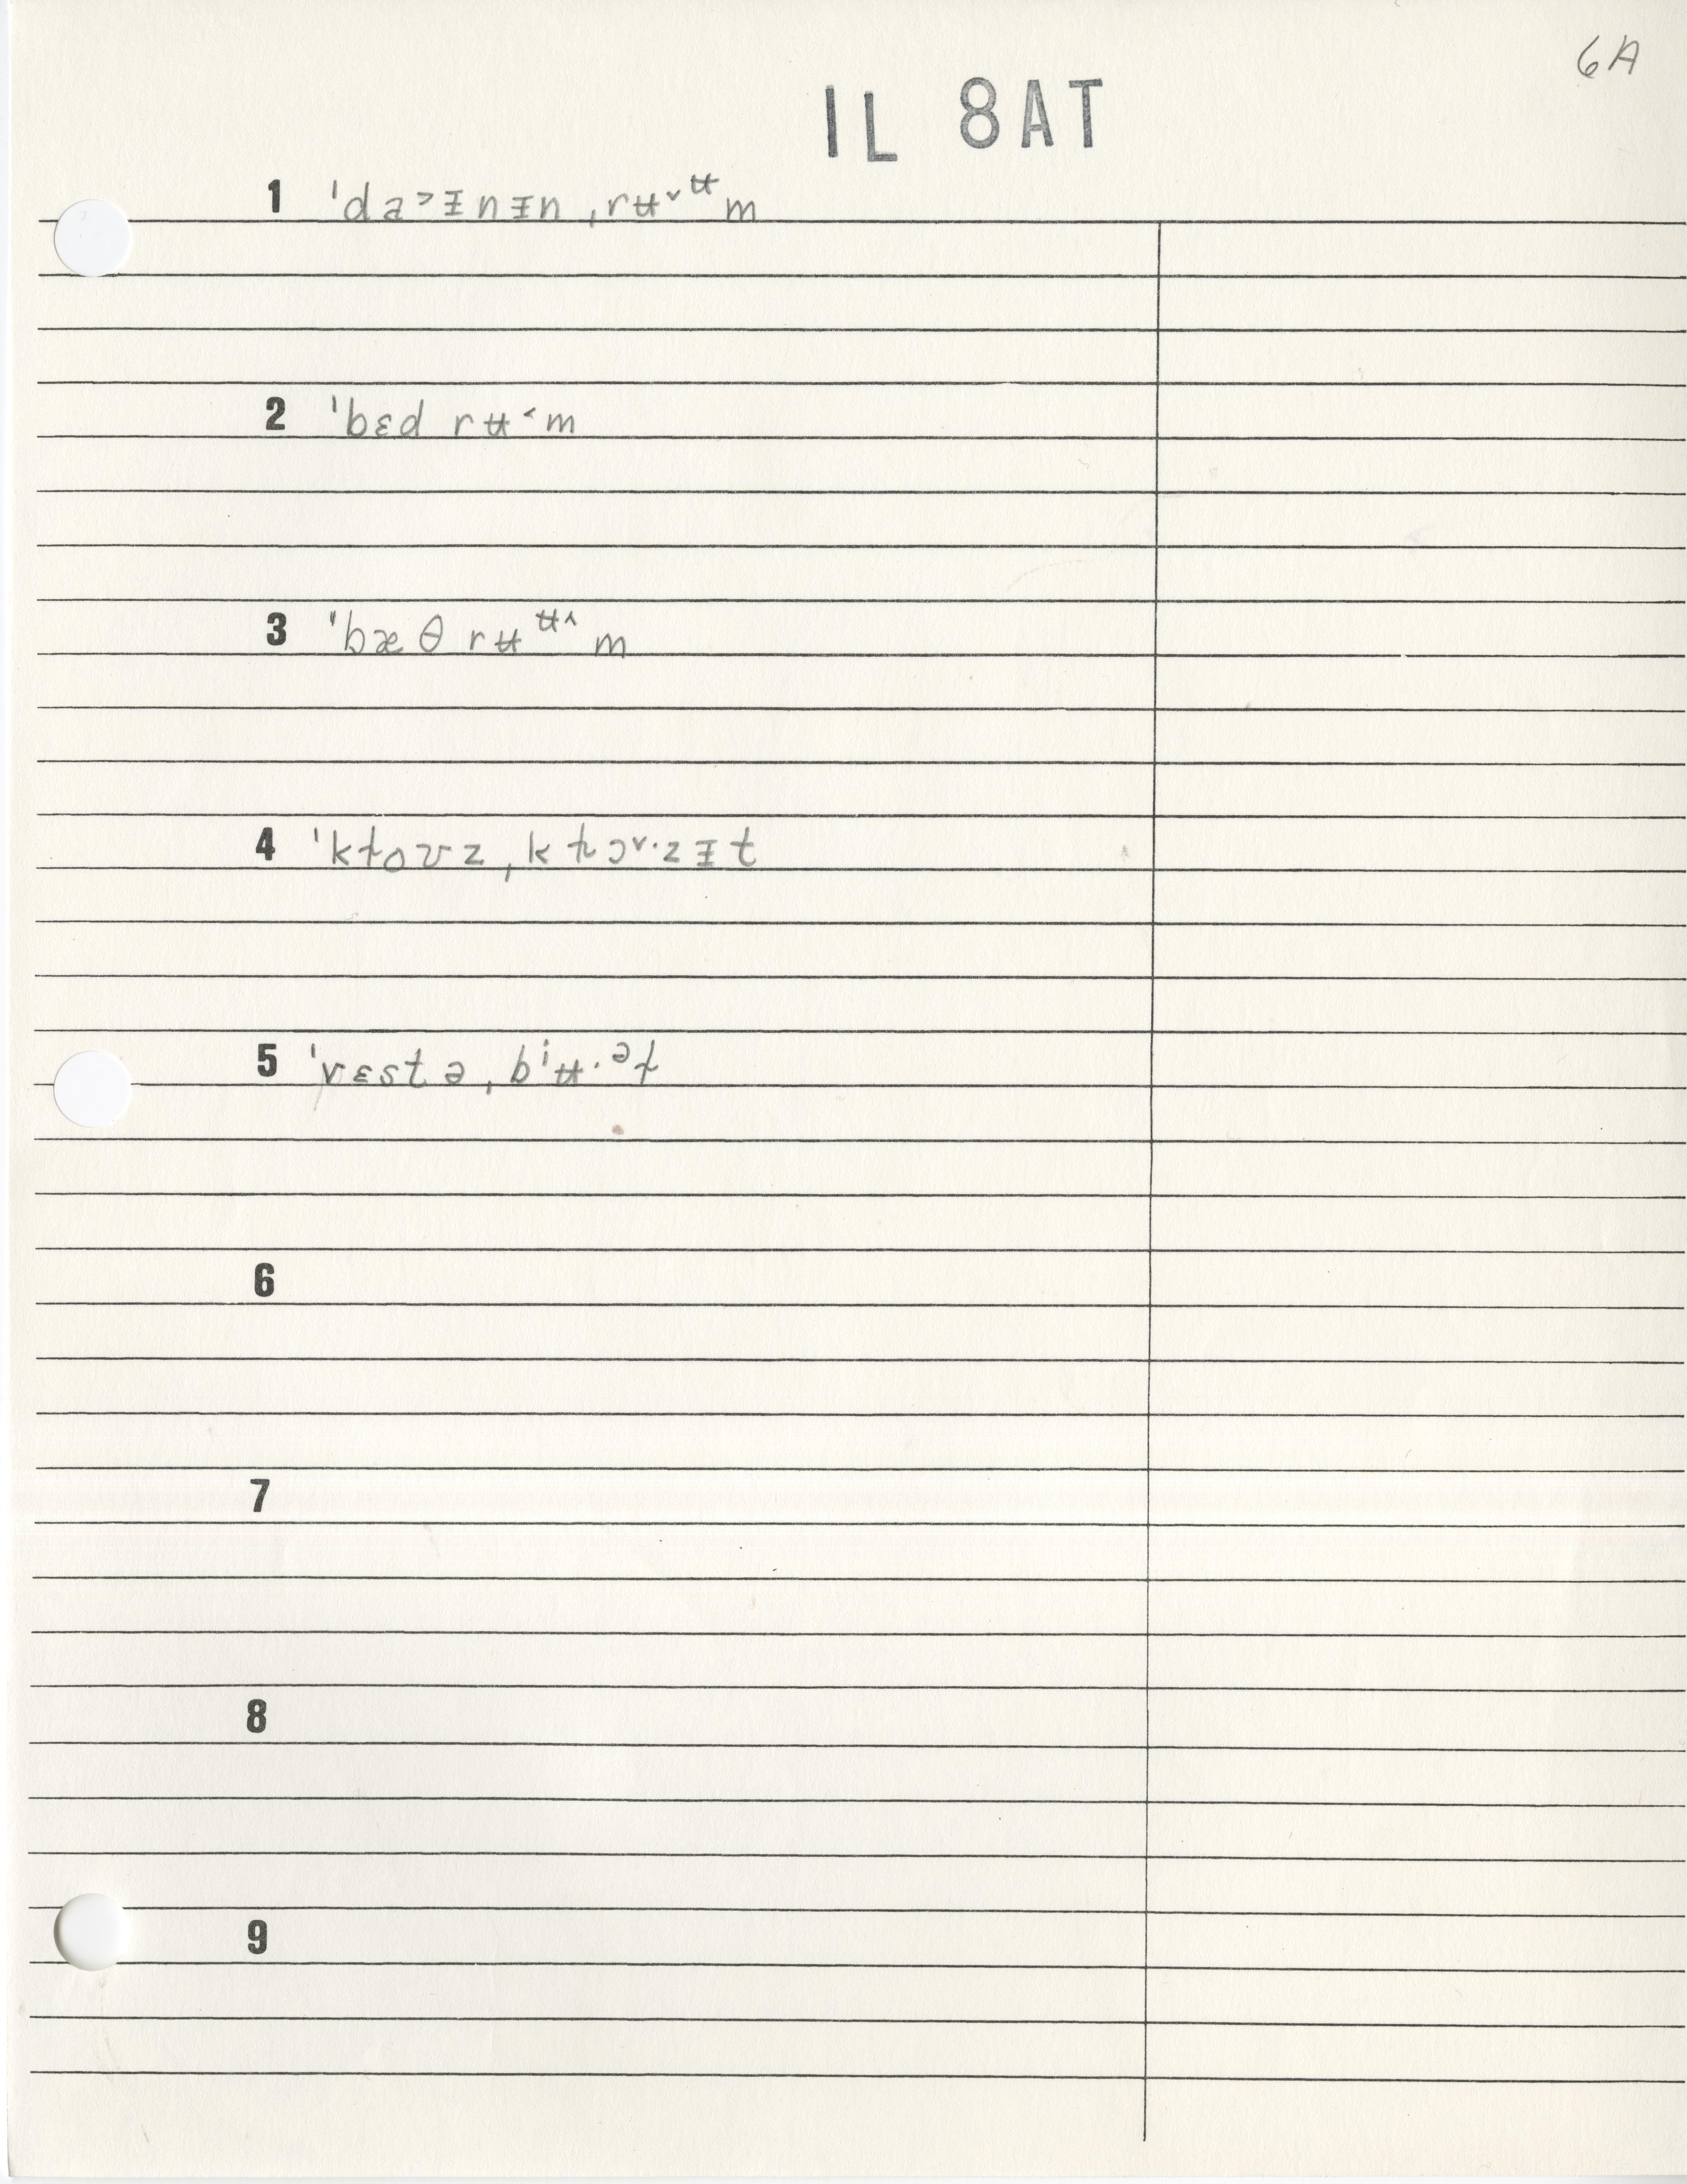 6A
IL 8AT
1 ˈda˃ᵻnᵻn ˌrʉ˅ᶶm
2 ˈbɛd rʉ˂m
3 ˈbæθ rʉᶶ˄m
4 ˈkɫoʊz ˌkɫɔ˅·zᵻt
5 ˈvɛstə ˌbⁱʉ·ᵊɫ
6
7
8
9